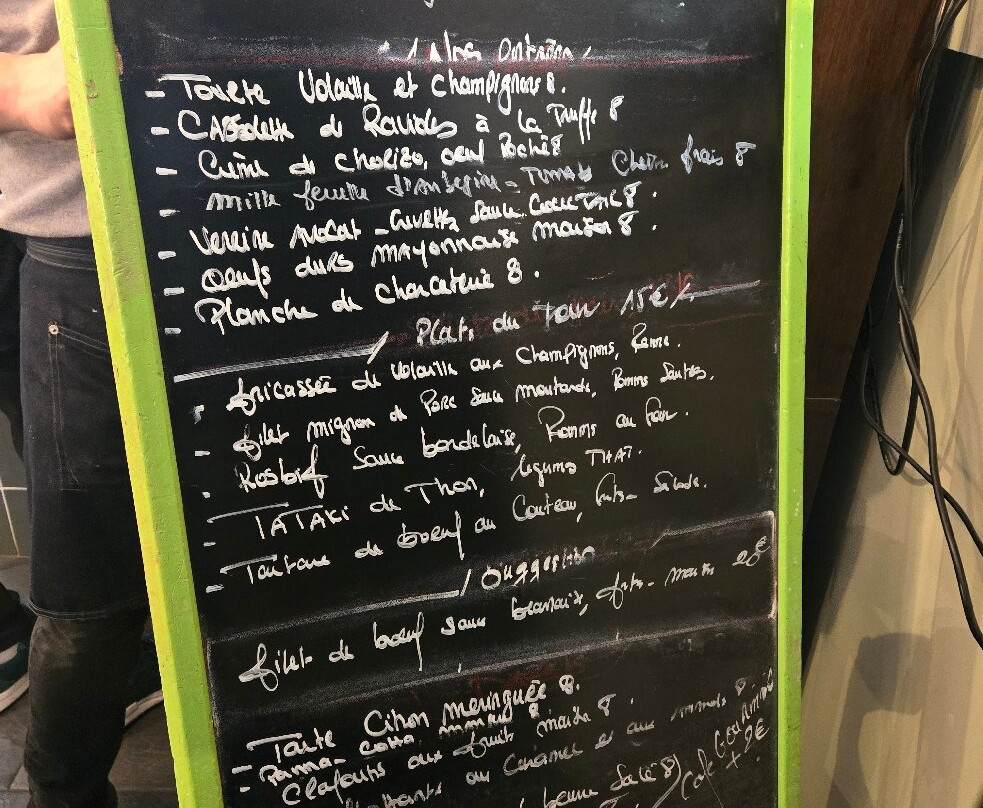 Nos Entrées
- Tourte Volaille et champignons 8.
- CASSolette de Ravioles à la Truffe 8
- Crème de chorizo, oeuf Poché 8
- mille feuille d'aubergine - Tomate Chèvre frais 8
- Verrine Avocat - Crevette Sauce CockTAIL 8.
- Oeufs durs MAYonnaise maison 8.
- Planche de charcuterie 8.
Plats du Jour 15€
- fricassée de Volaille aux champignons, 
- filet mignon de Porc Sauce moutarde, Pommes Sautées.
- Rosbif Sauce bordelaise, Pommes au four.
- TATAKI de Thon, légumes THAÏ.
- Tartare de boeuf au Couteau, frites - Salade.
Suggestion
filet de boeuf sauce béarnaise, frites - maison €
- Tarte Citron meringuée 8.
- Panna-cotta 8
- Clafoutis aux fruits maison 8.
au Caramel et aux 8
beurre Salé 8
Café Gourmand + 2€